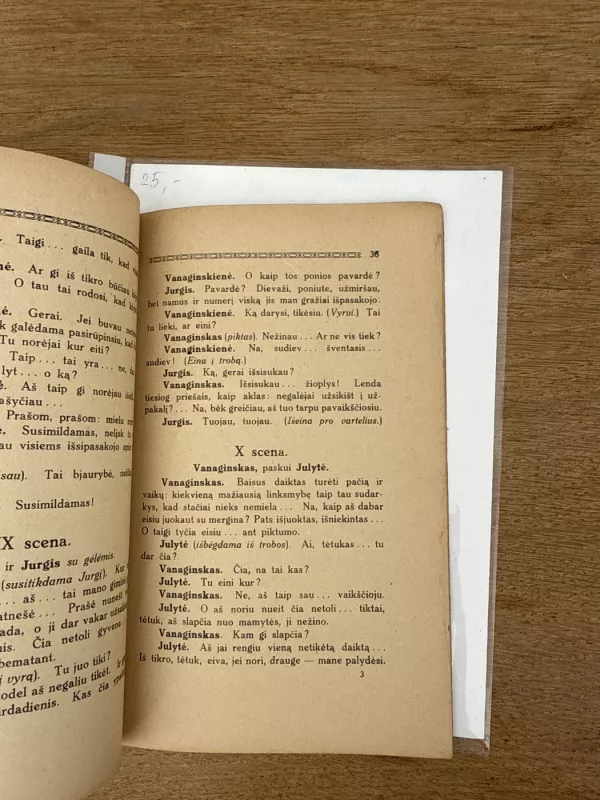 25,-
Taigi... gaila tik, kad
Ar gi iš tikro būčiau
O tau tai rodosi, kad
Gerai. Jei buvau
galėdama pasirūpinsiu, kad
Tu norėjai kur eiti?
Taip... tai yra... ne,
lyt... o ką?
Aš taip gi norėjau
Prašom, prašom: mielu
Susimildamas, nelįsk
visiems išsipasakojo
sau). Tai bjaurybė,
Susimildamas!
X scena.
ir Jurgis su gėlėmis.
(susitikdama Jurgį). Kur
... aš... tai mano gimini
atnešė... Prašė nunešt
o ji dar vakar
Čia netoli gyvena
bematant.
į vyrą). Tu juo tiki?
aš negaliu tikėt.
Kas čia
36
Vanaginskienė. O kaip tos ponios pavardė?
Jurgis. Pavardė? Dievaži, poniute, užmiršau,
bet namus ir numerį viską jis man gražiai išpasakojo.
Vanaginskienė. Ką darysi, tikėsiu. (Vyrui.) Tai
tu lieki, ar eini?
Vanaginskas (piktas). Nežinau... Ar ne vis tiek?
Vanaginskienė. Na, sudiev... šventasis...
sudiev! (Eina į trobą.)
Jurgis. Ką, gerai išsisukau?
Vanaginskas. Išsisukau... žioplys! Lenda
tiesiog priešais, kaip aklas: negalėjai užsikišt į už-
pakalį?... Na, bėk greičiau, aš tuo tarpu pavaikščiosiu.
Jurgis. Tuojau, tuojau. (Išeina pro vartelius.)
X scena.
Vanaginskas, paskui Julytė.
Vanaginskas. Baisus daiktas turėti pačią ir
vaikų: kiekvieną mažiausią linksmybę taip tau sudar-
kys, kad stačiai nieks nemiela... Na, kaip aš dabar
eisiu juokaut su mergina? Pats išjuoktas, išniekintas...
O taigi tyčia eisiu... ant piktumo.
Julytė (išbėgdama iš trobos). Ai, tėtukas... tu
dar čia?
Vanaginskas. Čia, na tai kas?
Julytė. Tu eini kur?
Vanaginskas. Ne, aš taip sau... vaikščioju.
Julytė. O aš noriu nueit čia netoli... tiktai,
tėtuk, aš slapčia nuo mamytės, ji nežino.
Vanaginskas. Kam gi slapčia?
Julytė. Aš jai rengiu vieną netikėtą daiktą...
Iš tikro, tėtuk, eiva, jei nori, drauge — mane palydėsi.
3